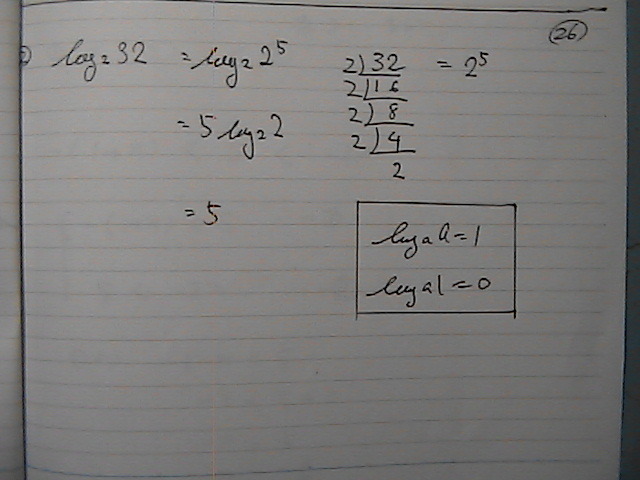 26
log₂32 = log₂2⁵
= 5 log₂2
= 5
2)32 = 2⁵
2)16
2)8
2)4
2
logₐa = 1
logₐ1 = 0